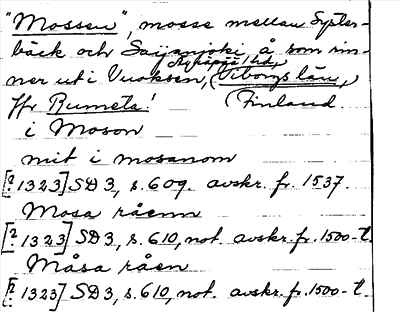 "Mossen", mosse mellan Syster-
bäck och Saijanjoki, å som rin-
ner ut i Vuoksen, (Äyräpää hd, Viborgs län,
Jfr Rumets! (Finland.
i Moson
mit i mosanom
[? 1323] SD 3, s. 609. avskr. fr. 1537.
Mosa råenn
[? 1323] SD 3, s. 610, not. avskr. fr. 1500-t.
Måsa råen
[? 1323] SD 3, s. 610, not. avskr. fr. 1500-t.